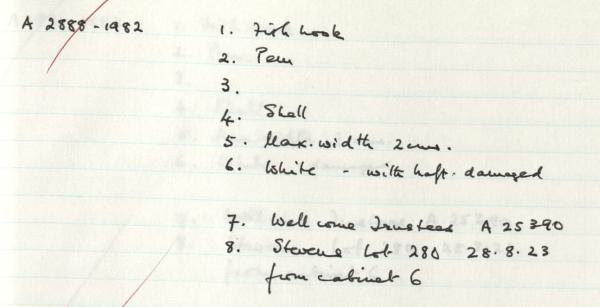 A 2888-1982 1. Fish hook
2. Peru
3.
4. Shell
5. Max. width 2cms.
6. White - with haft. damaged
7. Wellcome Trustees A 25390
8. Stevens Lot 280 28.8.23
from cabinet 6